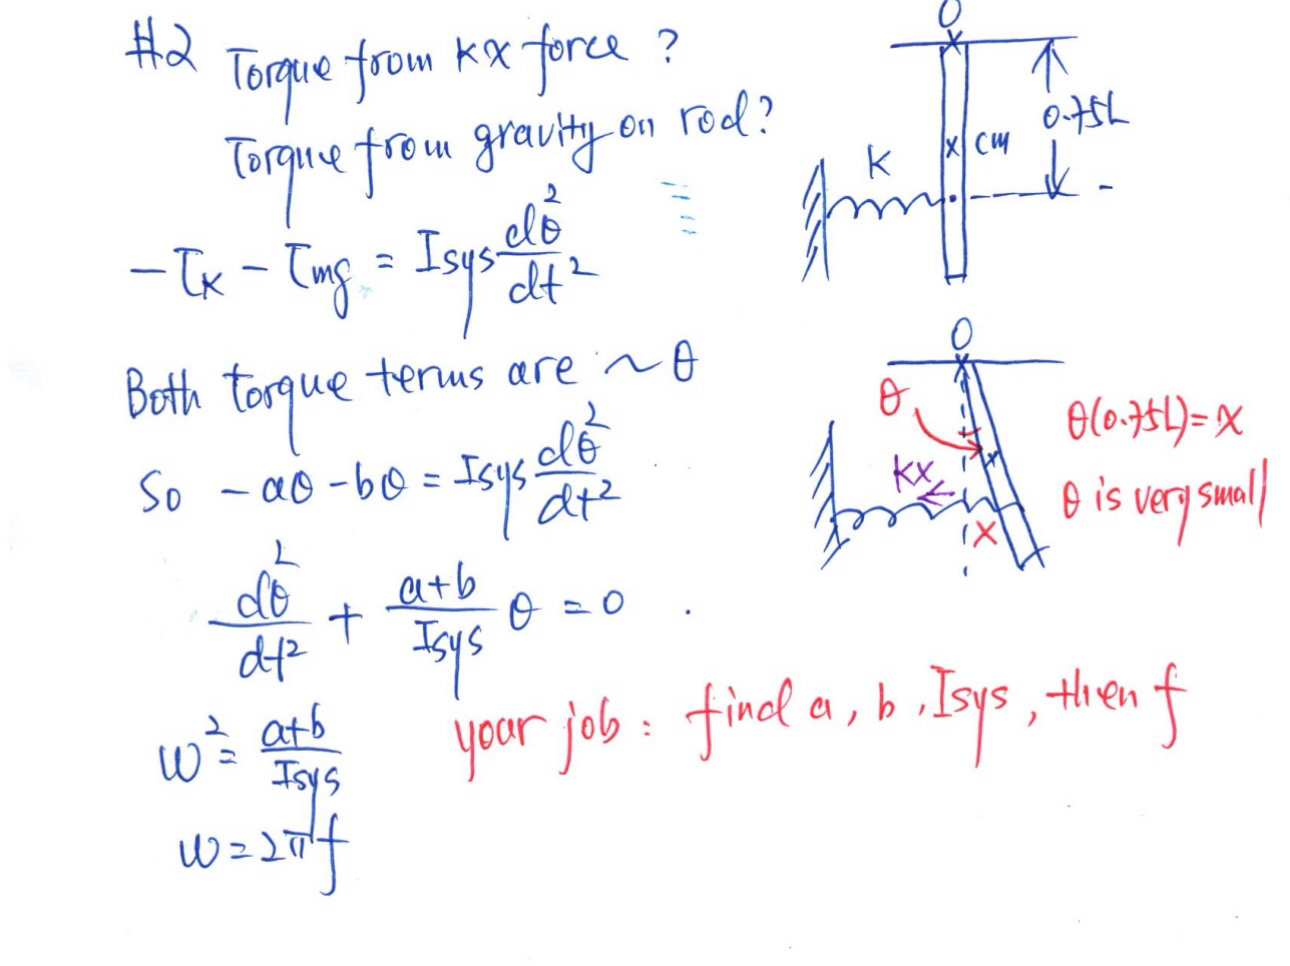 #2 Torque from kx force ?
Torque from gravity on rod?
-τk - τmg = Isys d²θ/dt²
Both torque terms are ~ θ
So -aθ - bθ = Isys d²θ/dt²
d²θ/dt² + (a+b)/Isys θ = 0 .
ω² = (a+b)/Isys
ω = 2πf
your job : find a, b, Isys, then f
O
0.75L
K
x cm
O
θ
θ(0.75L) = x
kx
θ is very small
x